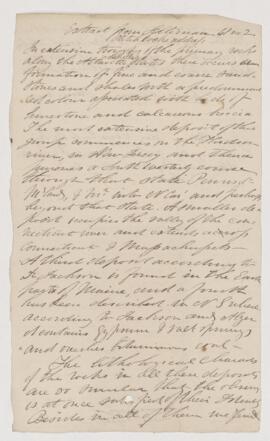 Extract from Silliman 41 no 2
In extensive troughs of the primary rocks
along the Atlantic States there occurs a
formation of fine and coarse sand
stones and shales with a predominant
red colour associated with beds of
limestone and calcareous breccia
The most extensive deposit of this
group commences on the Hudson
river, in New Jersey and thence
pursues a South westerly course
through that State Pennsa
Md, & Va. into N Ca and perhaps
beyond that State Another de
posit occupies the valley of the con
necticut river and extends across
Connecticut & Massachusetts
A third deposit according to
Dr Jackson is found in the East
part of Maine, and a fourth
has been described in N
according to Jackson and Alger
it contains Gypsum & salt springs
and overlies bituminous coal —
The lithological characters
of the rocks in all these deposits
are so similar that the observer
is at once satisfied of their identity
Besides in all of them we find